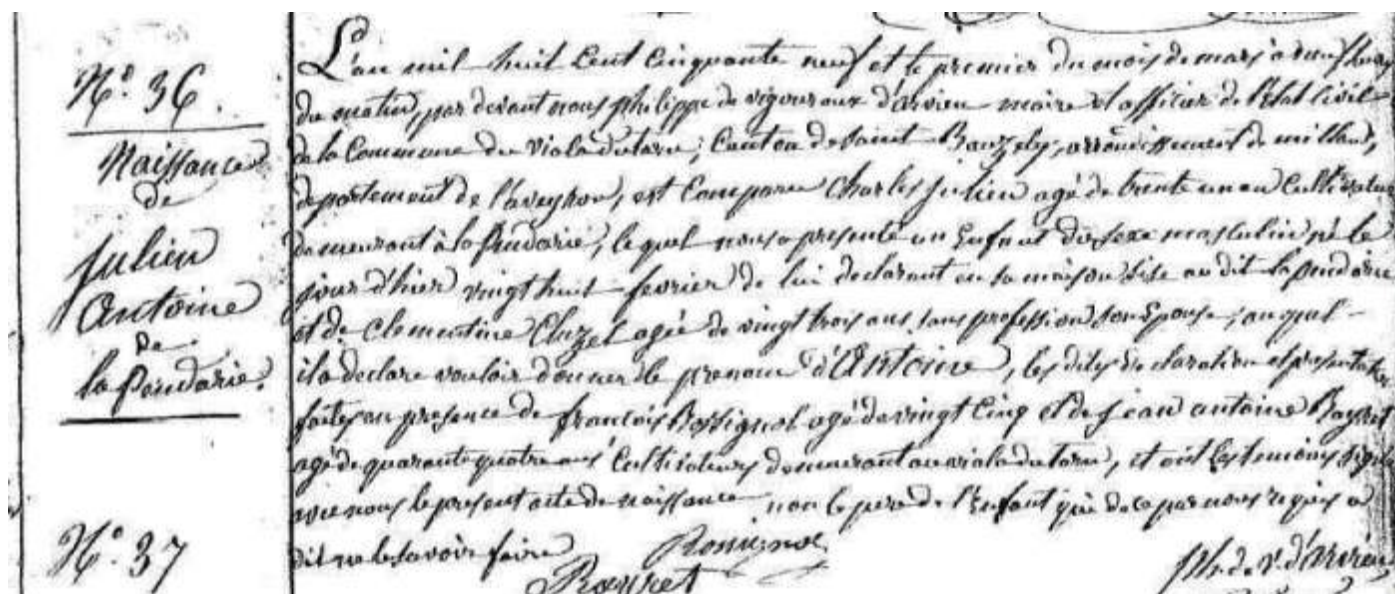 N.º 36.
Naissance
de
Julien
Antoine
de
la Pendarie.
L'an mil huit cent cinquante neuf et le premier du mois de mars à neuf heures
du matin, par devant nous philippe de vigouroux d'arvieu maire et officier de l'état civil
de la Commune du Viala du tarn, Canton de saint Bauzely, arrondissement de millau,
departement de l'aveyron, est comparu Charles Julien agé de trente un an Cultivateur
demeurant à la pendarie, le quel nous a presenté un Enfant du sexe masculin né le
jour d'hier vingt huit fevrier de lui declarant en sa maison sise au dit la pendarie
et de Clementine Cluzel agée de vingt trois ans, sans profession son Epouse; au quel
il a declaré vouloir donner le prenom d'Antoine, les dites declaration et presentation
faites en presence de françois Rossignol agé de vingt cinq et de jean antoine Bayret
agé de quarante quatre ans Cultivateurs demeurant au viala du tarn, et ont les temoins signé
avec nous le present acte de naissance non le pere de l'Enfant qui de ce par nous requis a
dit ne le savoir faire
Rossignol
Ph. de V. d'Arvieu
N.º 37